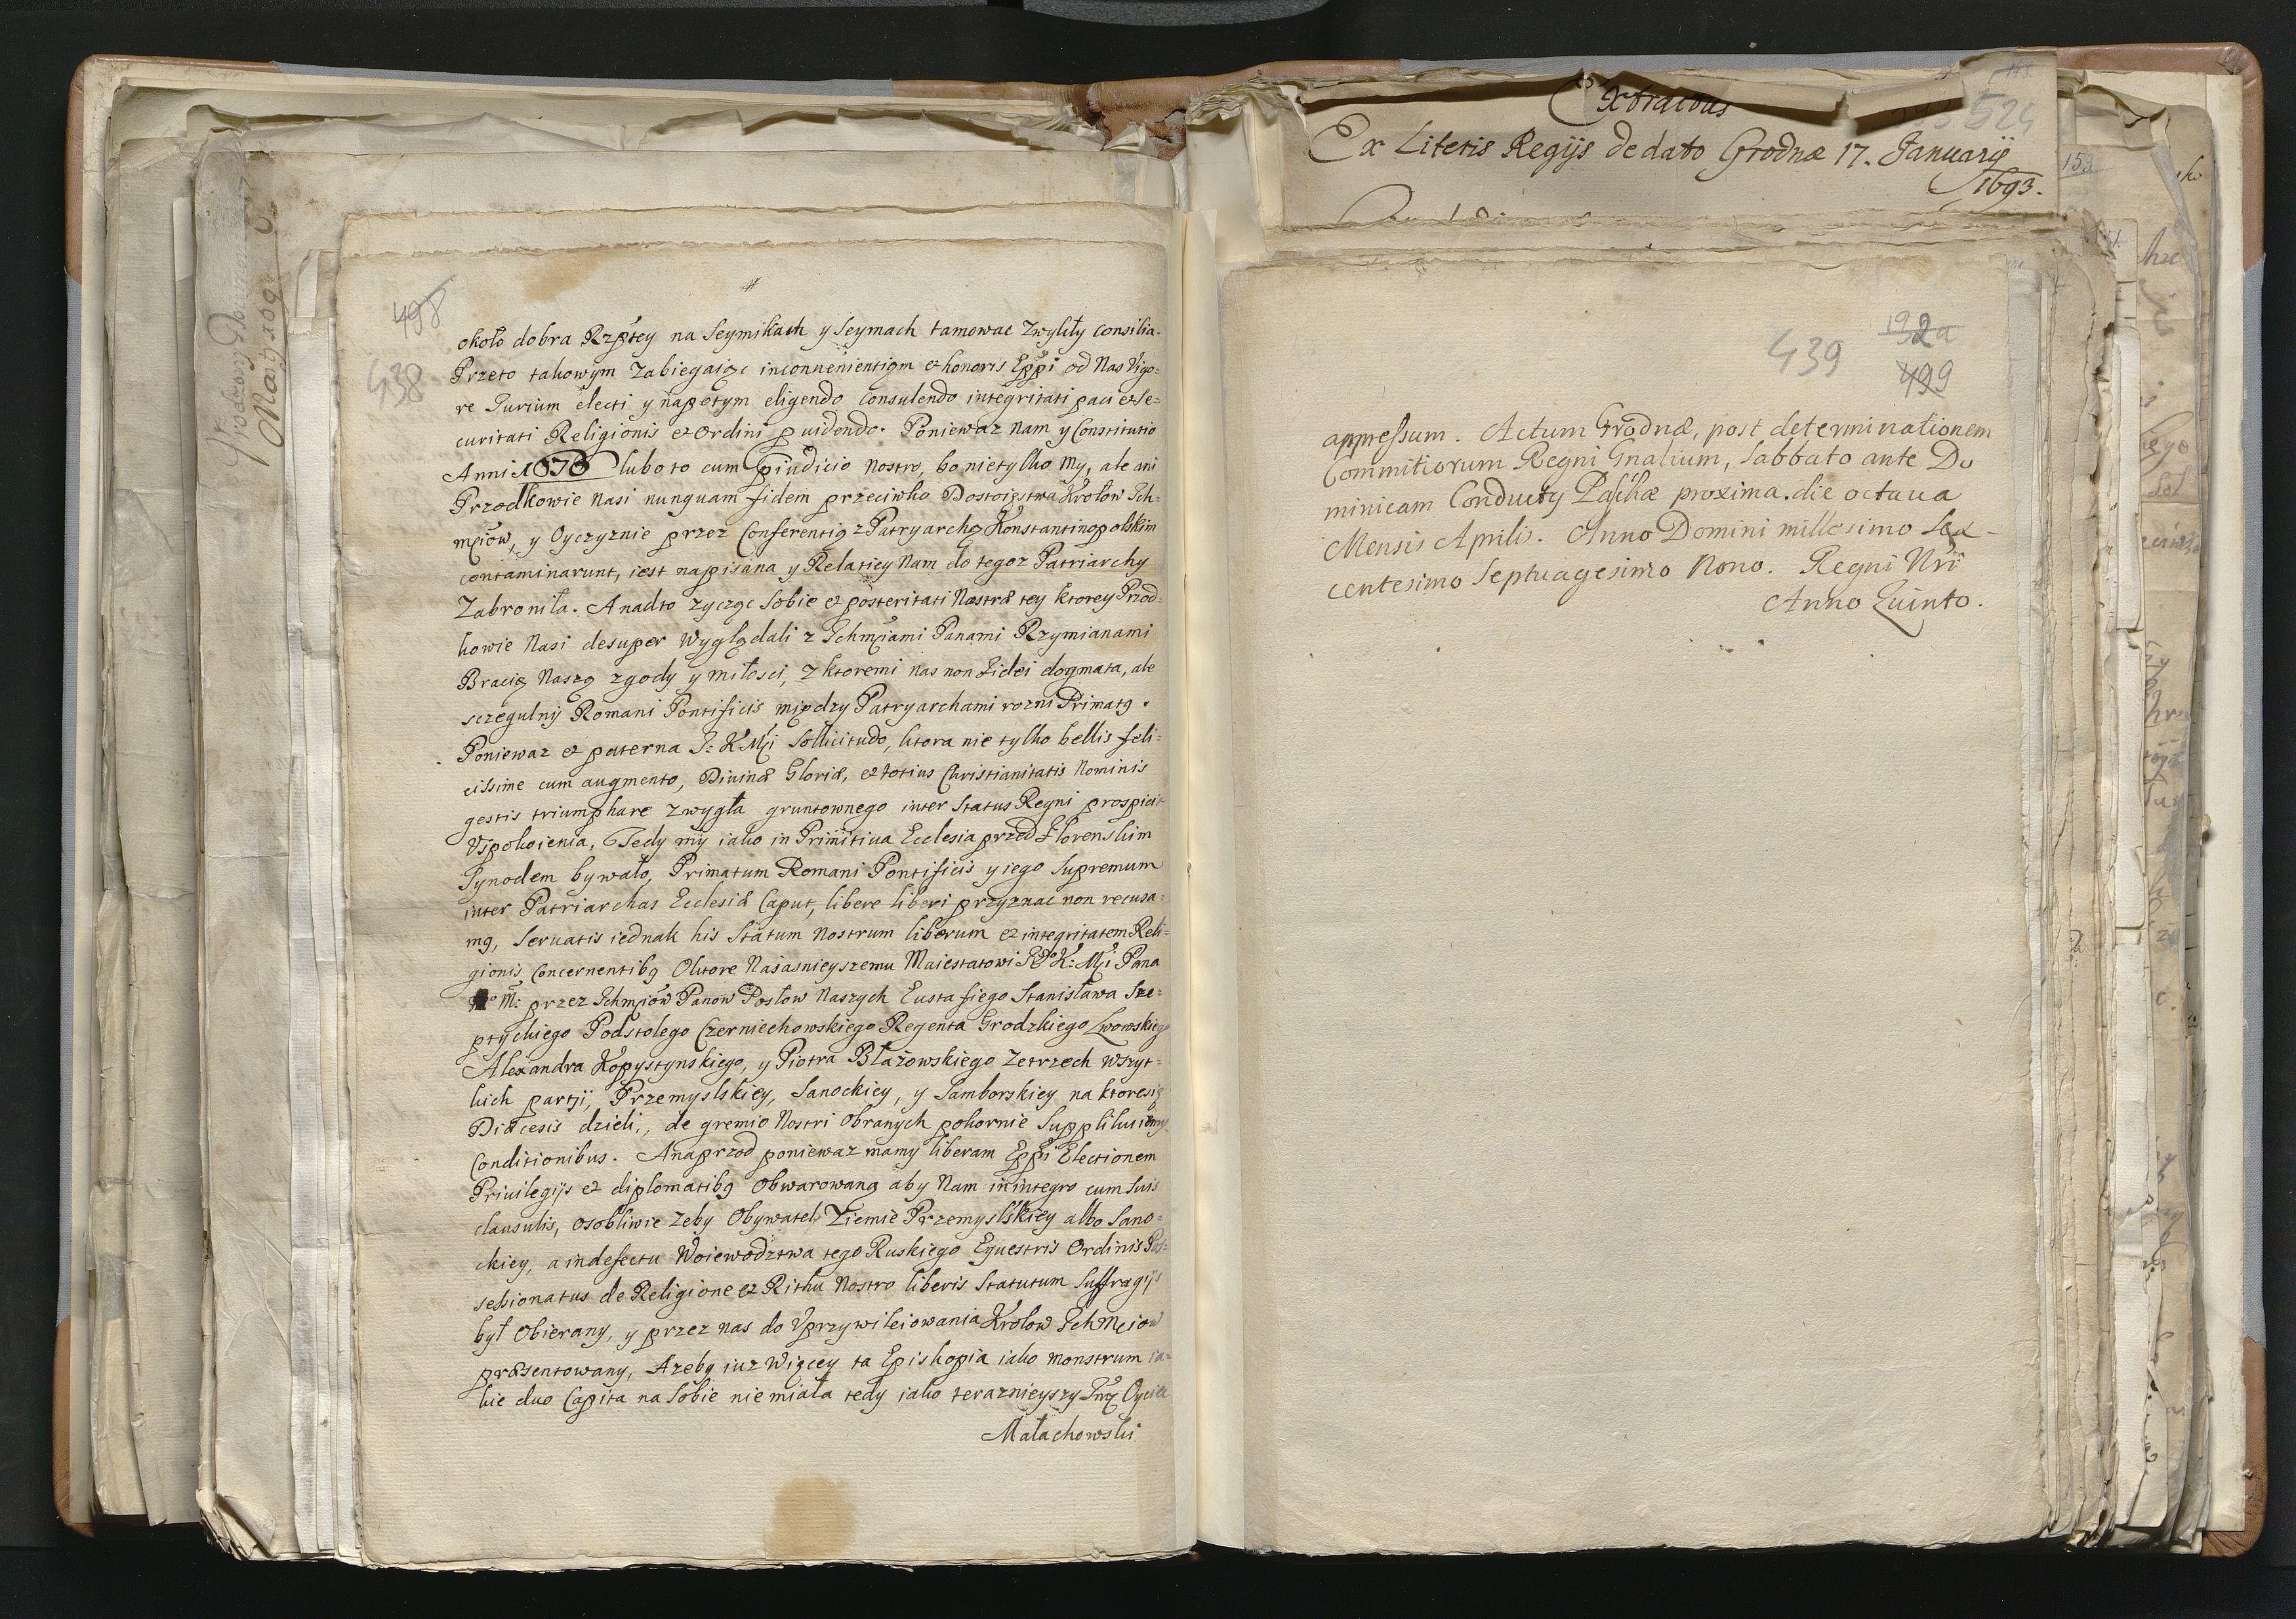 498
438
około dobra Rzptey na Seymikach y Seymach tamować zwykły consilia.
Przeto takowym zabiegaiąc inconuenientiom et honoris Eppi od Nas Vigo=
re Iurium electi y napotym eligendo consulendo integritati paci et Se=
curitati Religionis et Ordini puidendo. Poniewaz Nam y Constitutio
Anni 1676 lubo to cum Piudicio nostro, bo nietylko My, ale ani
Przodkowie Nasi nunquam fidem przeciwko Dostoięstwa Krolow Ich=
mciow, y Oyczyznie przez Conferentią z Patryarchą Konstantinopolskim
contaminarunt, iest napisana y Relatiey Nam do tegoz Patriarchy
Zabroniła. A nadto zycząc Sobie et posteritati Nostræ tey ktorey Przod=
kowie Nasi desuper wyglądali z Ichmciami Panami Rzymianami
Bracią Naszą zgody y miłosci, z ktoremi nas non Fidei dogmata, ale
sczegulny Romani Pontificis między Patryarchami rozni Primatq.
Poniewaz et paterna J: K Mci Sollicitudo, ktora nie tylko bellis feli=
cissime cum augmento, Diuinæ Gloriæ, et totius Christianitatis Nominis
gestis triumphare zwygła gruntownego inter Status Regni prospicit
Vspokoienia, Tedy my iako in Primitiua Ecclesia przed Florenskim
Synodem bywało, Primatum Romani Pontificis y iego Supremum
inter Patriarchas Ecclesiæ Caput, libere liberi przyznać non recusa=
mq, Seruatis iednak his Statum Nostrum liberum et integritatem Reli=
gionis concernentibq Oktore Naiasnieyszemu Maiestatowi JKo K: Mci Pana
M: przez Ichmciow Panow Posłow Naszych Eustafiego Stanisława Sze=
ptyckiego Podstolego Czerniechowskiego Regenta Grodzkiego Lwowskiego
Alexandra Kopystynskiego, y Piotra Błazowskiego Zetrzech wszyt=
kich partji, Przemyslskiey, Sanockiey, y Samborskiey na ktoresię
Diæcesis dzieli,, de gremio Nostri Obranych pokornie Supplikuiemy
Conditionibus. A naprzod poniewaz mamy liberam Eppi Electionem
Priuilegijs et diplomatibq Obwarowaną aby Nam in integro cum suis
clausulis, osobliwie zeby Obywatel Ziemie Przemyslskiey albo Sano=
ckiey, a in defectu Woiewodztwa tego Ruskiego Equestris Ordinis Pos=
sessionatus de Religione et Rithu Nostro liberis Statutum Suffragijs
był Obierany, y przez nas do Vprzywileiowania Krolow Ichmciow
præsentowany, Azeby iuz więcey ta Episkopia iako monstrum ia=
kie duo Capita na Sobie nie miała tedy iako teraznieyszy Jmć Oyciec
Małachowski
Extractus
524
Ex Literis Regijs de dato Grodnæ 17. Januarij
1693.
153
439
192a
499
appressum. Actum Grodnæ, post determinationem
Commitiorum Regni Gnalium, Sabbato ante Do
minicam Conductu Paschæ proxima. die octaua
Mensis Aprilis. Anno Domini millesimo Sex-
centesimo Septuagesimo Nono. Regni Nri
Anno Quinto.